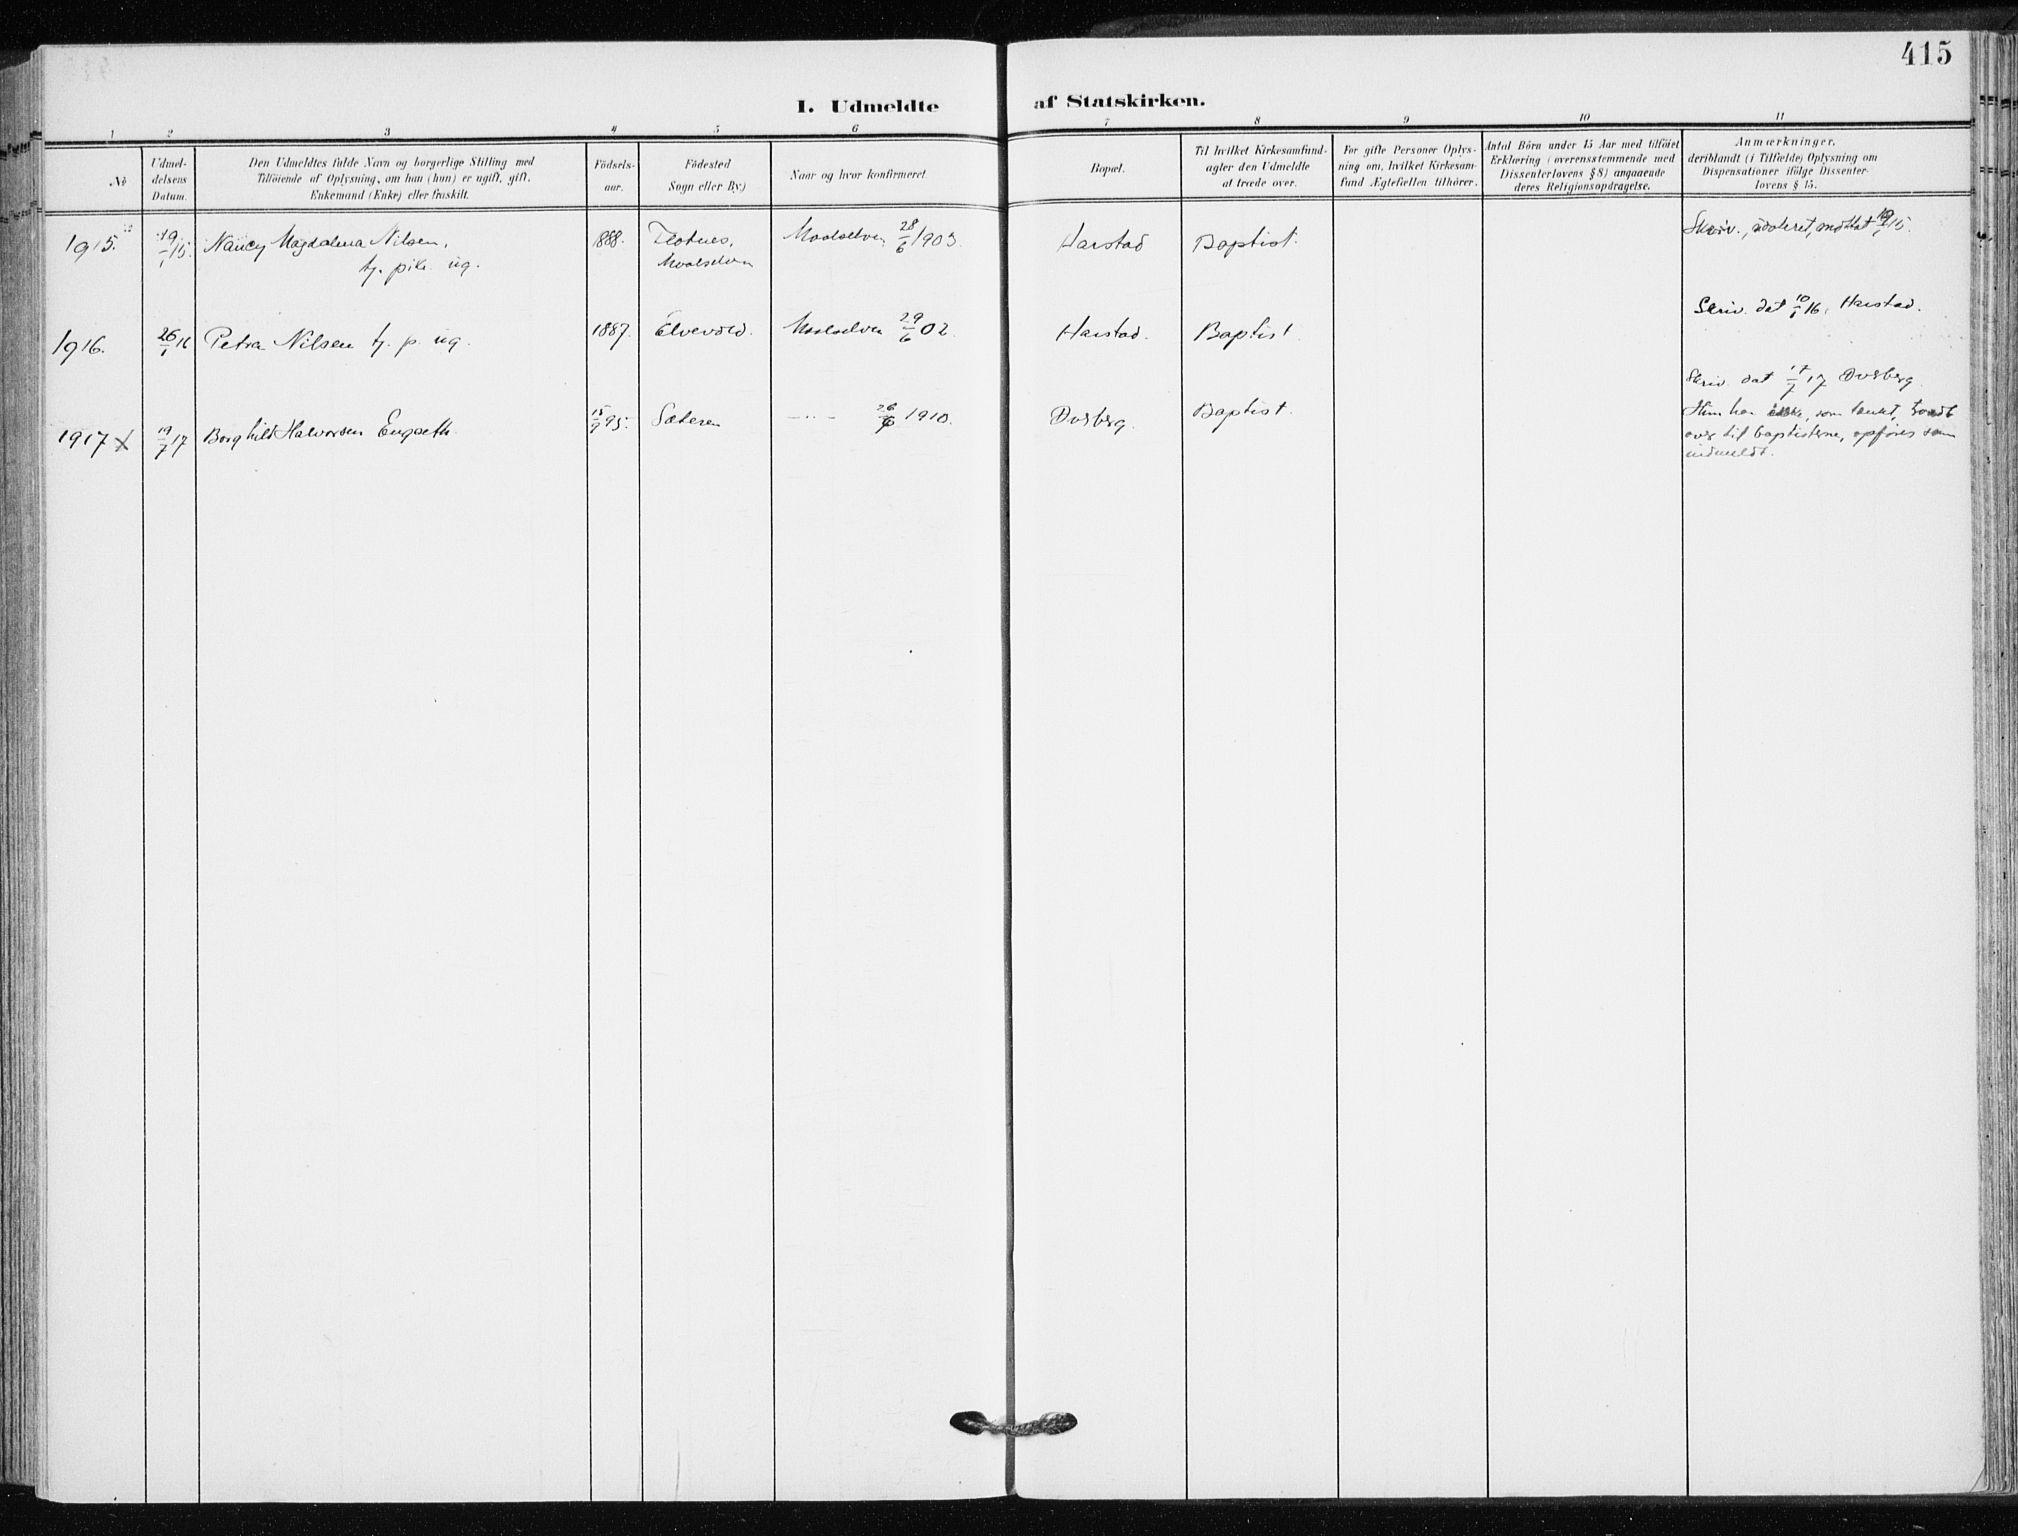 415
I. Udmeldte af Statskirken.
1 2 3 4 5 6 7 8 9 10 11
No
Udmel-
delsens
Datum.
Den Udmeldtes fulde Navn og borgerlige Stilling med
Tilföiende af Oplysning, om han (hun) er ugift, gift,
Enkemand (Enke) eller fraskilt.
Födsels-
aar.
Födested
Sogn eller By)
Naar og hvor konfirmeret.
Bopæl.
Til hvilket Kirkesamfund-
agter den Udmeldte
at træde over.
For gifte Personer Oplys-
ning om, hvilket Kirkesam-
fund Ægtefællen tilhörer.
Antal Börn under 15 Aar med tilföiet
Erklæring (overensstemmende med
Dissenterlovens § 8) angaaende
deres Religionsopdragelse.
Anmærkninger,
deriblandt (i Tilfælde) Oplysning om
Dispensationer ifölge Dissenter-
lovens § 15.
1915. 19/1 15. Nancy Magdalena Nilsen, 1888. Flotnes, Maalselven 28/6 1903. Harstad Baptist. Skriv., udateret, mottat 19/1 15.
tj. pike ug. Maalselven
Skriv. dat 10/1 16, Harstad.
1916. 26/1 16 Petra Nilsen tj. p. ug. 1887. Elvevold. Maalselven 29/6 02. Harstad. Baptist
Skriv. dat 17/7 17 Øverberg.
1917 x 19/7 17 Borghild Halvorsen Engseth. 15/9 95. Sæteren —"— 26/6 1910. Baptist. Hun har ikke, som tænkt, traadt
over til baptisterne, opføres som
indmeldt.